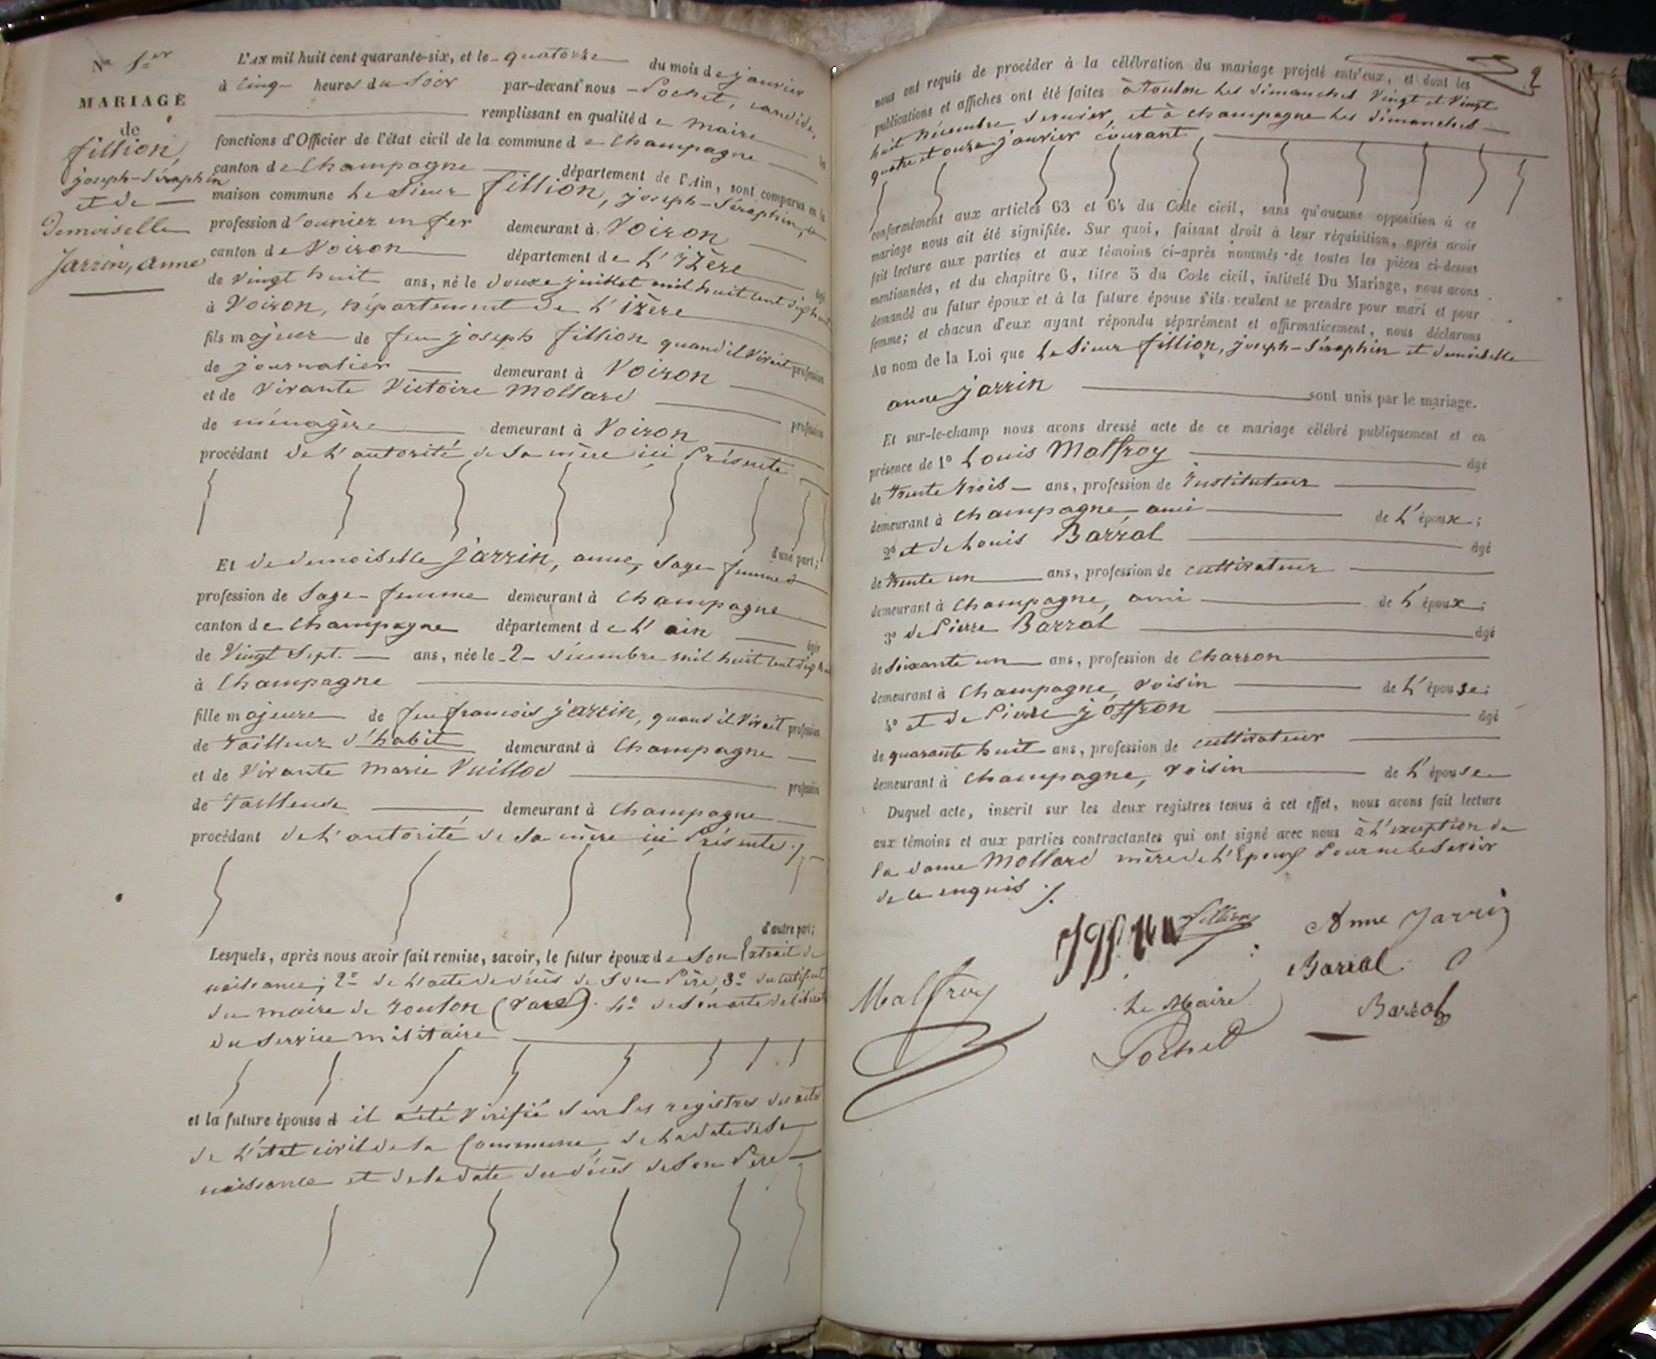 No 1er
MARIAGE
de
fillion,
joseph-Séraphin
et de
Demoiselle
Jarrin, anne
L'AN mil huit cent quarante-six, et le quatorze du mois de janvier
à cinq heures du Soir par-devant nous Pochet,
remplissant en qualité de maire les
fonctions d'Officier de l'état civil de la commune de Champagne
canton de Champagne département de l'Ain, sont comparus en la
maison commune Le Sieur fillion, joseph-Séraphin,
profession d'ouvrier en fer demeurant à Voiron
canton de Voiron département de L'Izère
âgé
de vingt huit ans, né le douze juillet mil huit cent dix sept
à Voiron, département de L'izère
fils majeur de feu joseph fillion quand il vivait profession
de journalier demeurant à Voiron
et de vivante Victoire Mollard
profession
de ménagère demeurant à Voiron
procédant de L'autorité de Sa mère ici Présente
d'une part;
Et de demoiselle jarrin, anne, Sage femme
profession de Sage-femme demeurant à Champagne
canton de Champagne département de L'ain
âgée
de Vingt Sept ans, née le 2 décembre mil huit cent dix huit
à Champagne
fille majeure de feu françois jarrin, quand il vivait profession
de Tailleur d'habit demeurant à Champagne
et de vivante marie Vuillod
profession
de Tailleuse demeurant à Champagne
procédant de L'autorité de Sa mère ici Présente ./.
d'autre part;
Lesquels, après nous avoir fait remise, savoir, le futur époux de Son Extrait de
naissance; 2o de L'acte de décès de Son Père, 3o du certificat
du maire de Toulon (Vare) 4o de Son acte de Libération
du service militaire
et la future épouse d il a été vérifié Sur les registres des actes
de L'état civil de la Commune, de la date de Sa
naissance et de la date du décès de Son Père
2
nous ont requis de procéder à la célébration du mariage projeté entr'eux, et dont les
publications et affiches ont été faites à Toulon Les dimanches Vingt et Vingt
huit décembre dernier, et à Champagne Les dimanches
quatre et onze janvier courant
conformément aux articles 63 et 64 du Code civil, sans qu'aucune opposition à ce
mariage nous ait été signifiée. Sur quoi, faisant droit à leur réquisition, après avoir
fait lecture aux parties et aux témoins ci-après nommés de toutes les pièces ci-dessus
mentionnées, et du chapitre 6, titre 5 du Code civil, intitulé Du Mariage, nous avons
demandé au futur époux et à la future épouse s'ils veulent se prendre pour mari et pour
femme; et chacun d'eux ayant répondu séparément et affirmativement, nous déclarons
Au nom de la Loi que Le Sieur fillion, joseph-Séraphin et demoiselle
anne jarrin sont unis par le mariage.
Et sur-le-champ nous avons dressé acte de ce mariage célébré publiquement et en
présence de 1o Louis Malfroy âgé
de Trente trois ans, profession de Instituteur
demeurant à Champagne, ami de L'époux;
2o et de Louis Barral âgé
de trente un ans, profession de cultivateur
demeurant à Champagne, ami de L'époux;
3o de Pierre Barral âgé
de Soixante un ans, profession de Charron
demeurant à Champagne, voisin de L'épouse;
4o et de Pierre joffron âgé
de quarante huit ans, profession de cultivateur
demeurant à Champagne, voisin de L'épouse
Duquel acte, inscrit sur les deux registres tenus à cet effet, nous avons fait lecture
aux témoins et aux parties contractantes qui ont signé avec nous à L'exception de
la dame Mollard mère de L'Epoux Pour ne Le Savoir
de ce enquis ./.
fillion Anne Jarrin
Malfroy Barral
Le Maire Barral
Pochet